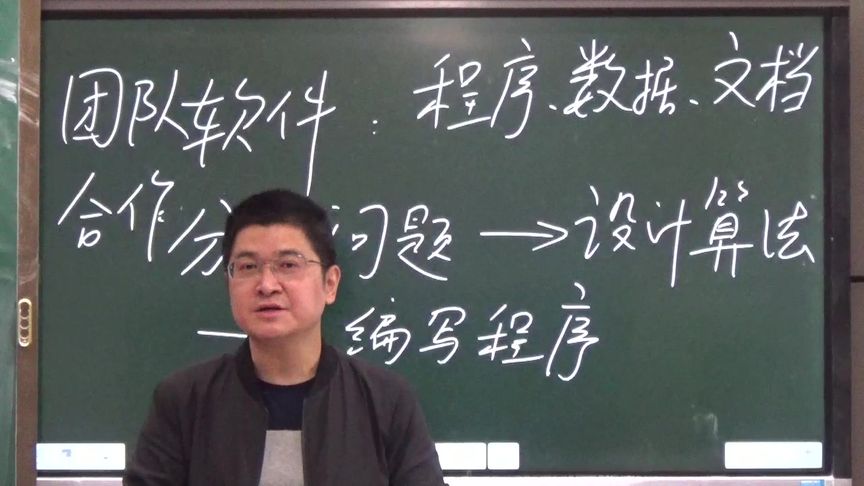 团队软件：程序、数据、文档
合作 分 问题 → 设计算法
编写程序